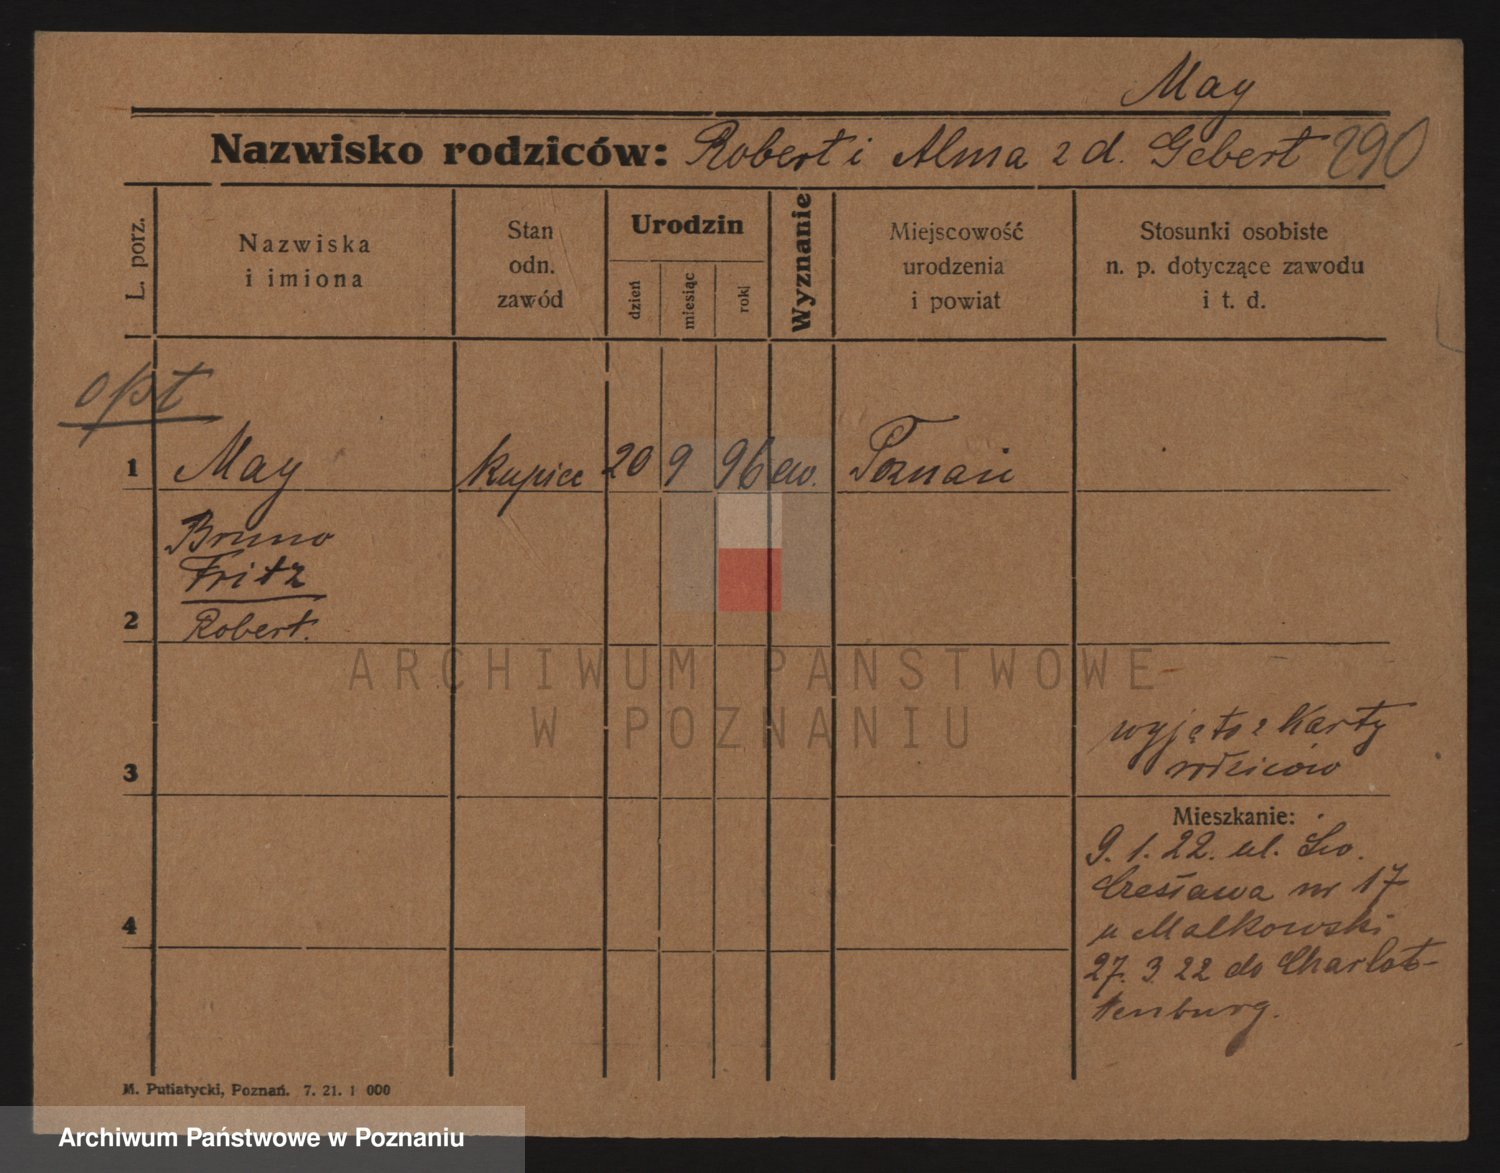 May
Nazwisko rodziców: Robert i Alma z d. Gebert 290
L. porz.
Nazwiska
i imiona
Stan
odn.
zawód
Urodzin
dzień
miesiąc
rok
Wyznanie
Miejscowość
urodzenia
i powiat
Stosunki osobiste
n. p. dotyczące zawodu
i t. d.
opt
1 May kupiec 20 9 96 ew. Poznań
Bruno
Fritz
2 Robert.
ARCHIWUM PAŃSTWOWE
W POZNANIU
wyjęto z Karty
3 rodziców
Mieszkanie:
9. 1. 22. ul. Św.
Czesława nr 17
4 u Malkowski
27. 3 22 do Charlot-
tenburg.
M. Putiatycki, Poznań. 7. 21. 1 000
Archiwum Państwowe w Poznaniu